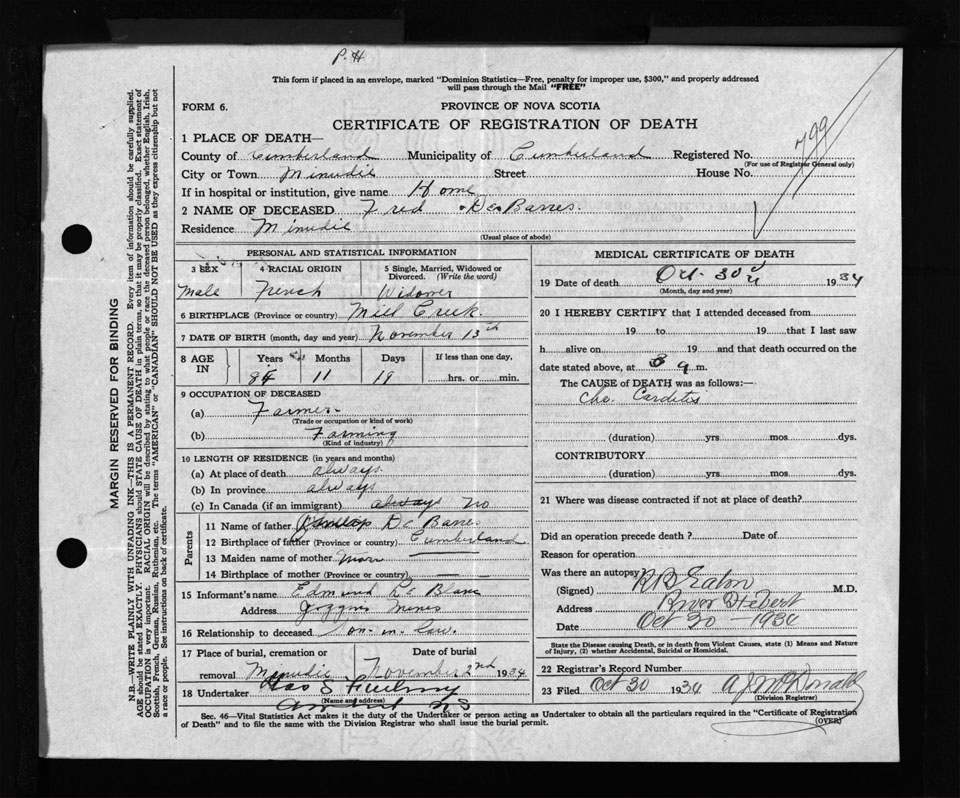 P. H
This form if placed in an envelope, marked "Dominion Statistics—Free, penalty for improper use, $300," and properly addressed
will pass through the Mail "FREE"
FORM 6.
PROVINCE OF NOVA SCOTIA
CERTIFICATE OF REGISTRATION OF DEATH
799
1 PLACE OF DEATH—
County of Cumberland Municipality of Cumberland Registered No.
(For use of Registrar General only)
City or Town Minudie Street House No.
If in hospital or institution, give name Home
2 NAME OF DECEASED Fred De Barres
Residence Minudie
(Usual place of abode)
PERSONAL AND STATISTICAL INFORMATION
3 SEX 4 RACIAL ORIGIN 5 Single, Married, Widowed or Divorced. (Write the word)
Male French Widower
6 BIRTHPLACE (Province or country) Mill Creek.
7 DATE OF BIRTH (month, day and year) November 13th
8 AGE IN Years Months Days If less than one day,
11 19 hrs. or min.
9 OCCUPATION OF DECEASED
(a) Farmer
(Trade or occupation or kind of work)
(b) Farming
(Kind of industry)
10 LENGTH OF RESIDENCE (in years and months)
(a) At place of death always
(b) In province always
(c) In Canada (if an immigrant) always no
Parents
11 Name of father De Barres
12 Birthplace of father (Province or country) Cumberland
13 Maiden name of mother
14 Birthplace of mother (Province or country) —
15 Informant's name Edmund Le Blanc
Address Joggins Mines
16 Relationship to deceased Son-in-law.
17 Place of burial, cremation or removal Date of burial
Minudie November 2nd 1934
18 Undertaker Geo S
(Name and address)
Amherst NS
MEDICAL CERTIFICATE OF DEATH
19 Date of death Oct. 30 1934
(Month, day and year)
20 I HEREBY CERTIFY that I attended deceased from
19 to 19 that I last saw
h alive on 19 and that death occurred on the
date stated above, at m.
The CAUSE of DEATH was as follows:—
Chr. Carditis
(duration) yrs mos dys.
CONTRIBUTORY
(duration) yrs mos dys.
21 Where was disease contracted if not at place of death?
Did an operation precede death? Date of
Reason for operation
Was there an autopsy
(Signed) Eaton M.D.
Address River Hebert
Date Oct 30 - 1934
State the Disease causing Death, or in death from Violent Causes, state (1) Means and Nature
of Injury, (2) whether Accidental, Suicidal or Homicidal.
22 Registrar's Record Number
23 Filed Oct 30 1934 A J McDonald
(Division Registrar)
Sec. 46—Vital Statistics Act makes it the duty of the Undertaker or person acting as Undertaker to obtain all the particulars required in the "Certificate of Registration
of Death" and to file the same with the Division Registrar who shall issue the burial permit.
(OVER)
MARGIN RESERVED FOR BINDING
N.B.—WRITE PLAINLY WITH UNFADING INK—THIS IS A PERMANENT RECORD. Every item of information should be carefully supplied.
AGE should be stated EXACTLY. PHYSICIANS should STATE CAUSE OF DEATH in plain terms, so that it may be properly classified. Exact statement of
OCCUPATION is very important. RACIAL ORIGIN will be described by stating to what people or race the deceased person belonged, whether English, Irish,
Scottish, French, German, Russian, Ruthenian, etc. The terms "AMERICAN" or "CANADIAN" SHOULD NOT BE USED as they express citizenship but not
a race or people. See instructions on back of certificate.